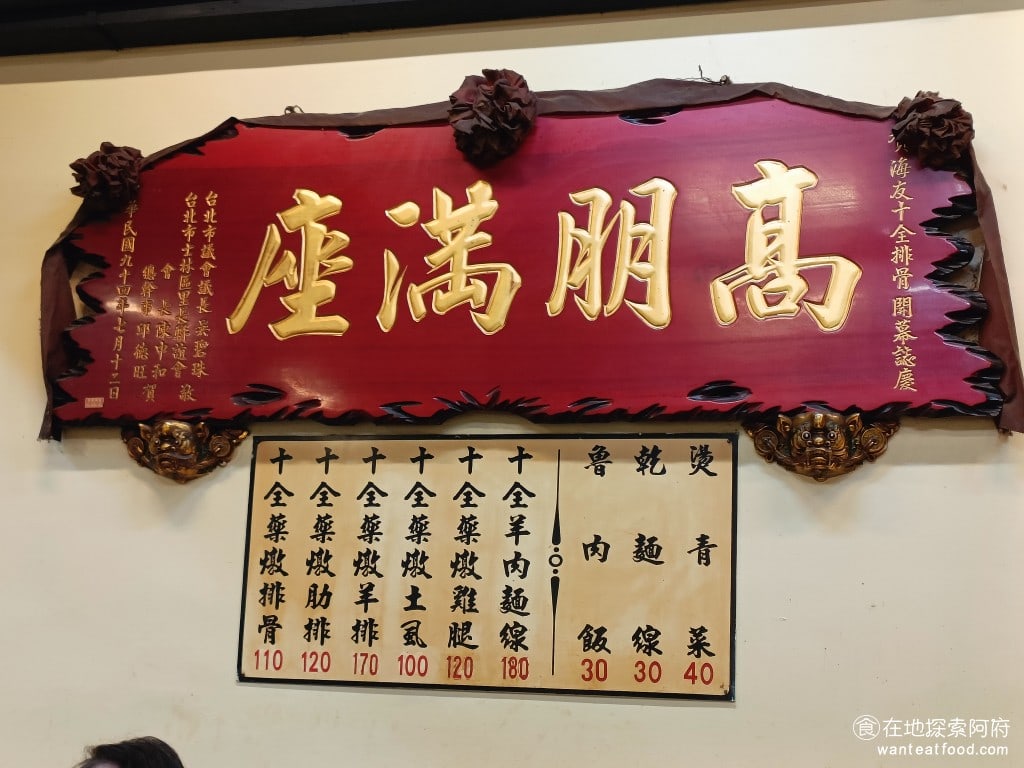 海友十全排骨開幕誌慶
高朋滿座
台北市議會議長吳碧珠
台北市士林區里長聯誼會
會長陳中和
總幹事邱德旺
敬賀
華民國九十四年七月十二日
燙青菜 40
乾麵線 30
魯肉飯 30
十全羊肉麵線 180
十全藥燉雞腿 120
十全藥燉土虱 100
十全藥燉羊排 170
十全藥燉肋排 120
十全藥燉排骨 110
食在地探索阿府
wanteatfood.com